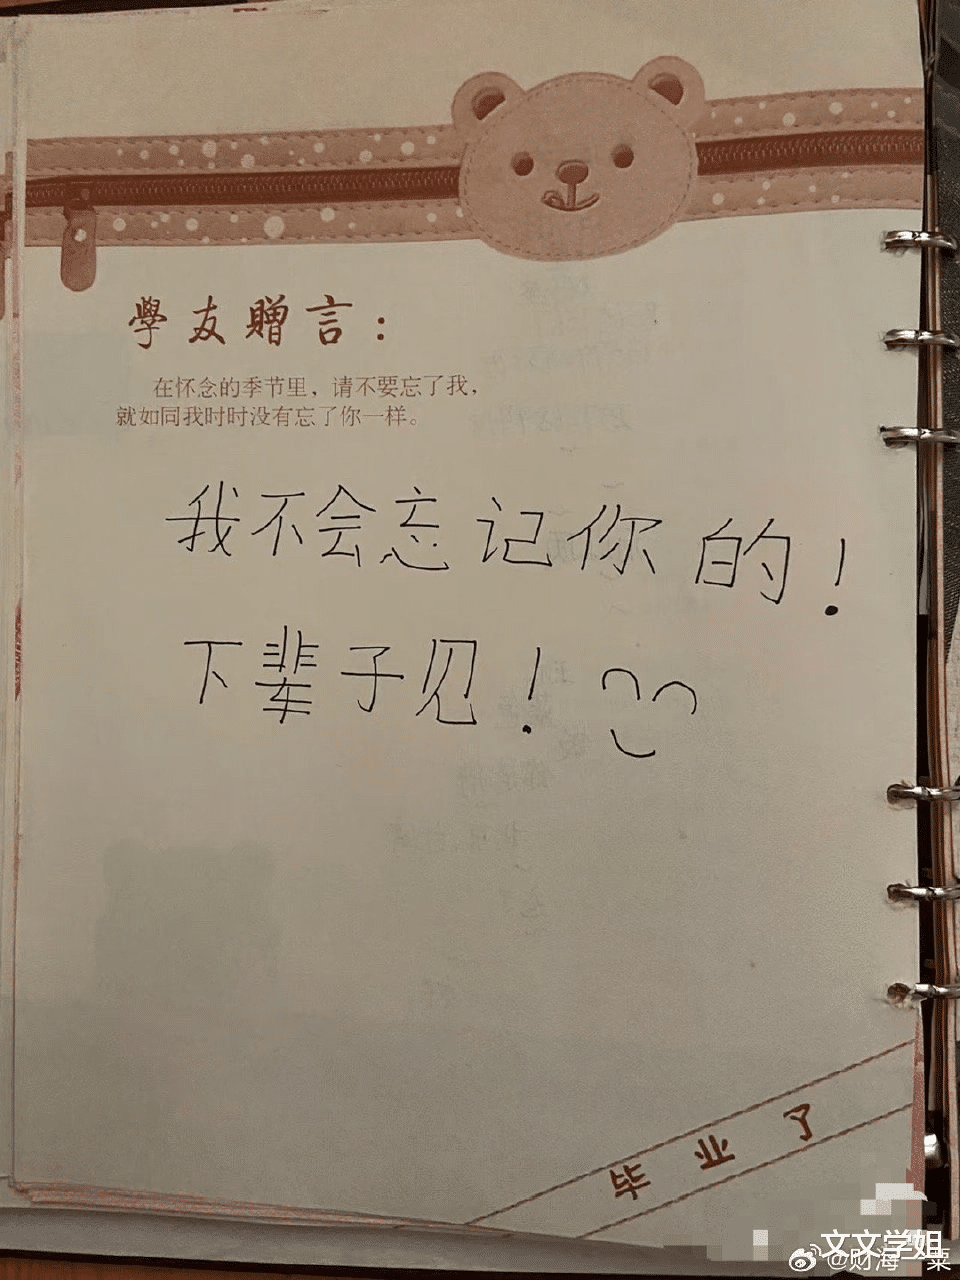 學友贈言：
在怀念的季节里，请不要忘了我，
就如同我时时没有忘了你一样。
我不会忘记你的！
下辈子见！
毕业了
文文学姐
@财海一粟